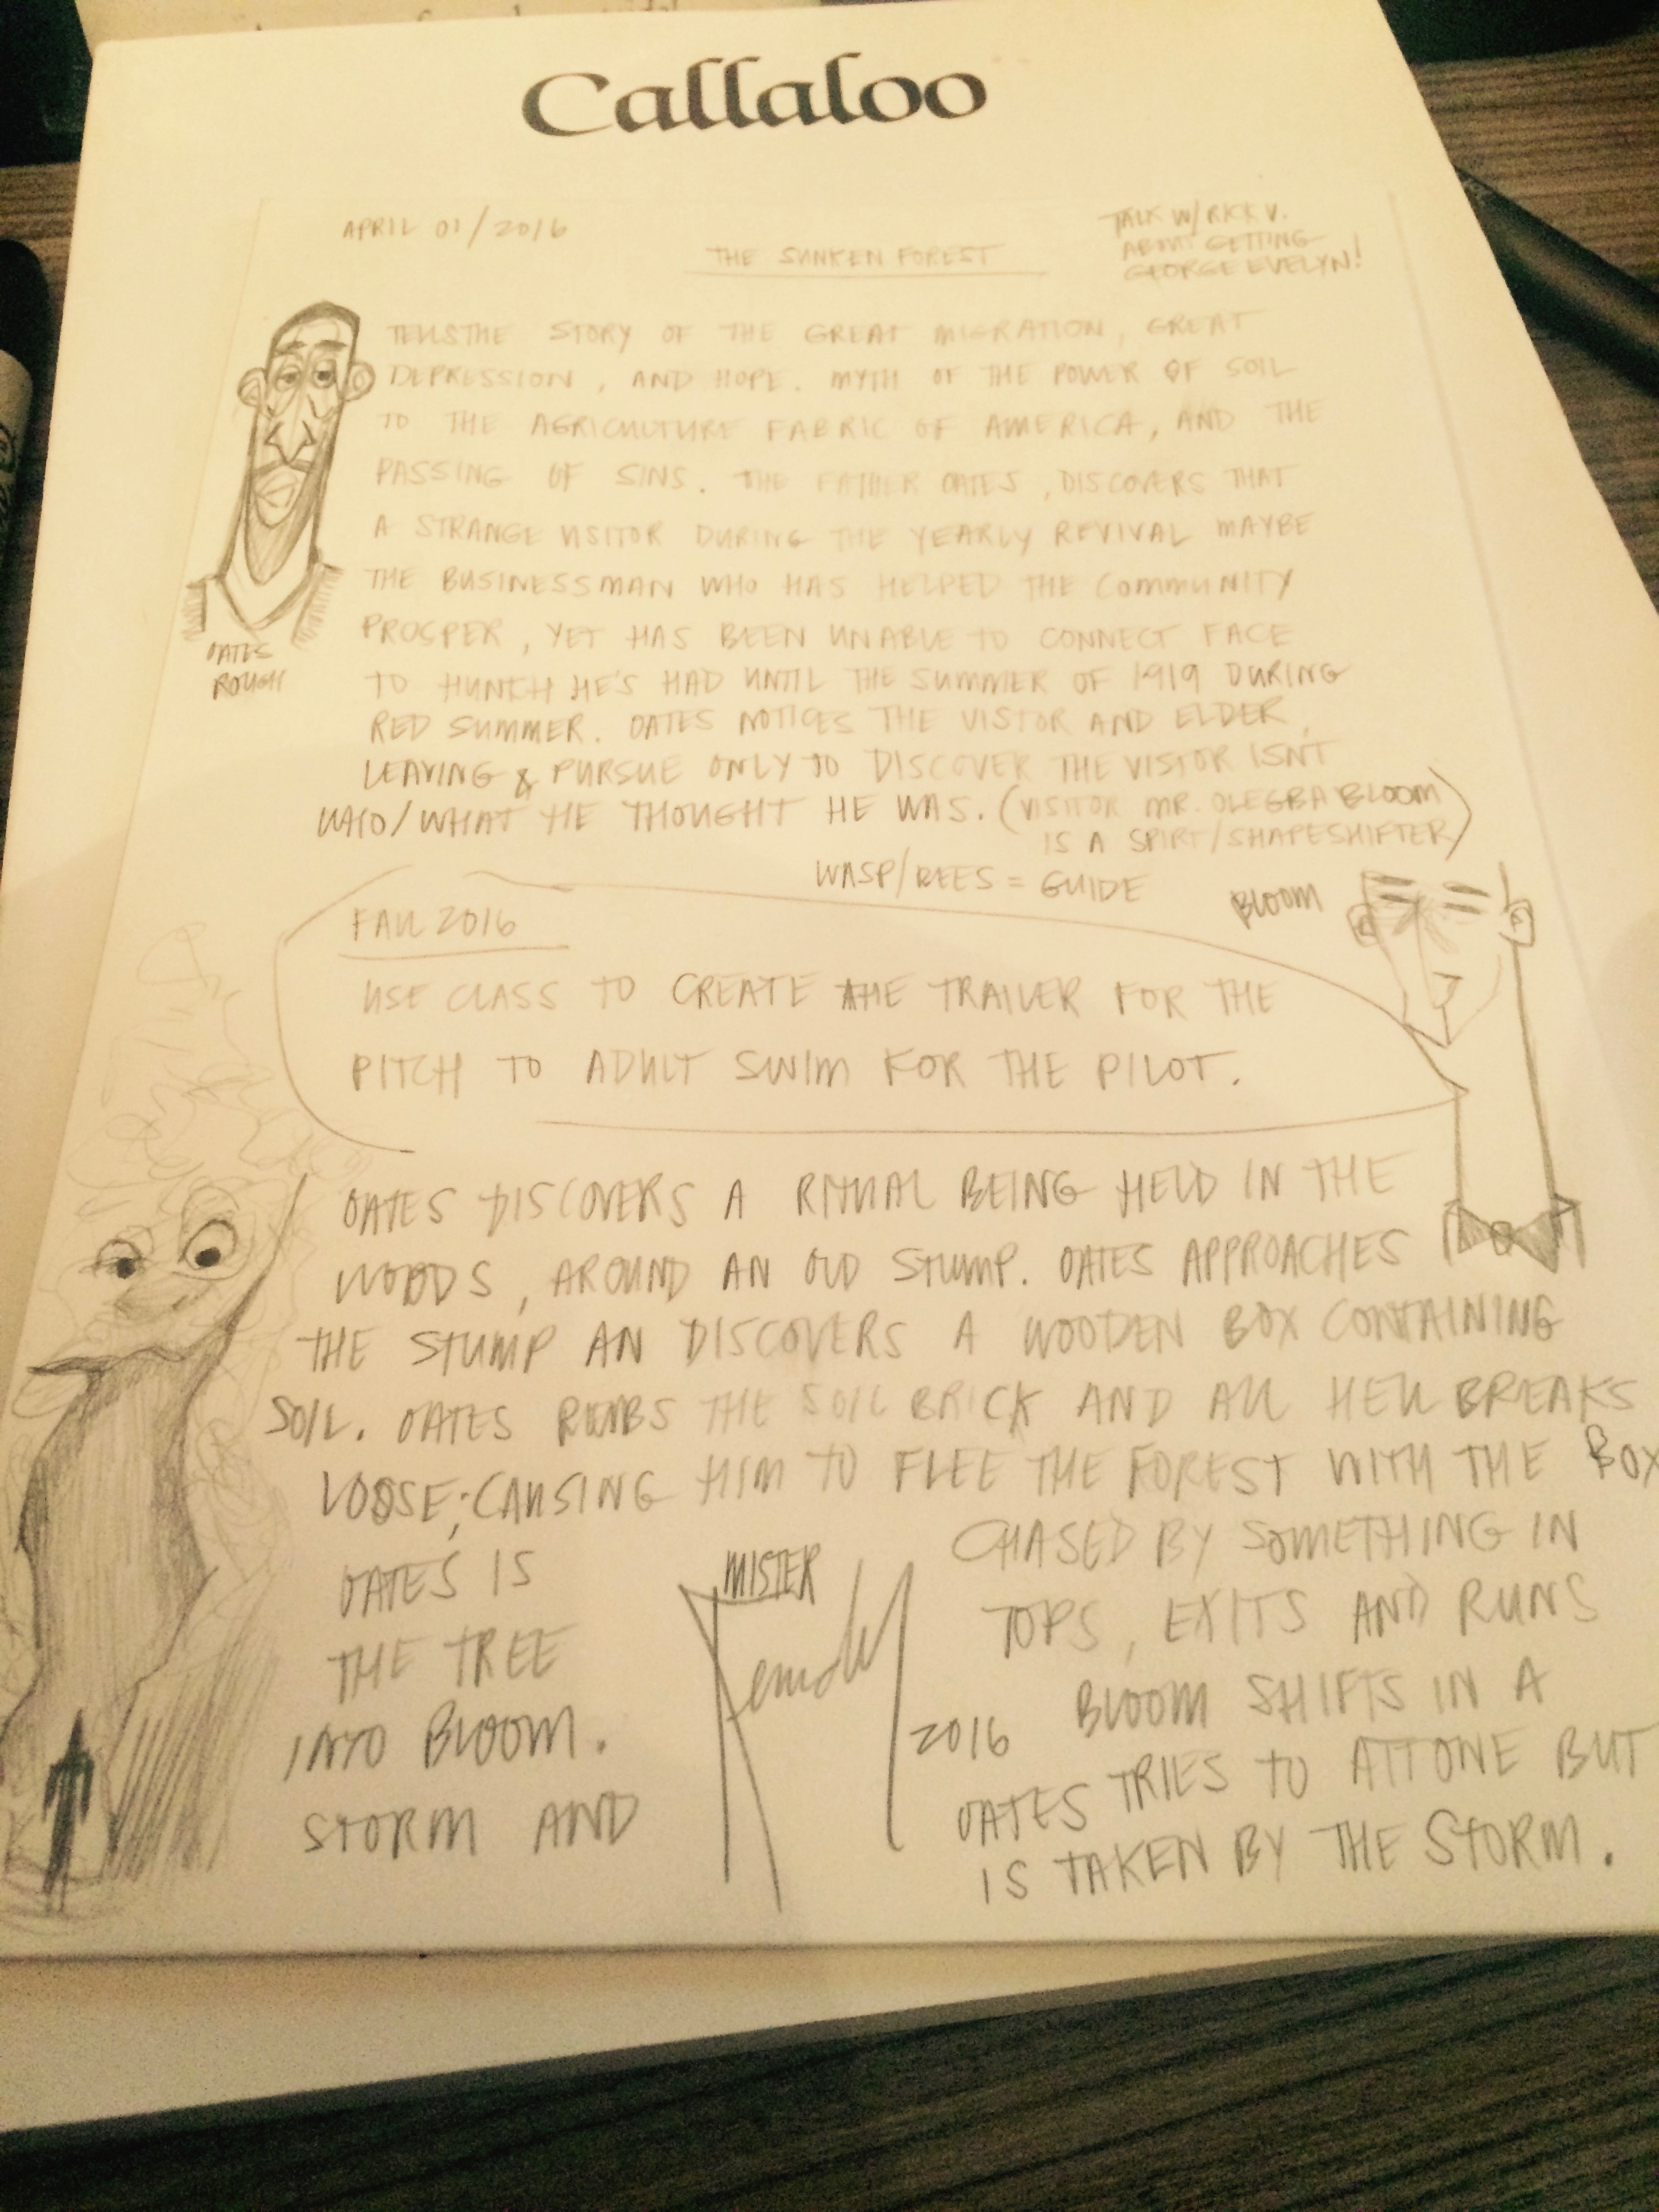 Callaloo
APRIL 01/2016
TALK W/ RICK V.
ABOUT GETTING
GEORGE EVELYN!
THE SUNKEN FOREST
TELLS THE STORY OF THE GREAT MIGRATION, GREAT
DEPRESSION, AND HOPE. MYTH OF THE POWER OF SOIL
TO THE AGRICULTURE FABRIC OF AMERICA, AND THE
PASSING OF SINS. THE FATHER OATES, DISCOVERS THAT
A STRANGE VISITOR DURING THE YEARLY REVIVAL MAYBE
THE BUSINESSMAN WHO HAS HELPED THE COMMUNITY
PROSPER, YET HAS BEEN UNABLE TO CONNECT FACE
TO HUNCH HE'S HAD UNTIL THE SUMMER OF 1919 DURING
RED SUMMER. OATES NOTICES THE VISTOR AND ELDER
LEAVING & PURSUE ONLY TO DISCOVER THE VISTOR ISN'T
WHO/WHAT HE THOUGHT HE WAS. (VISITOR MR. OLEGBA BLOOM
IS A SPIRT/SHAPESHIFTER)
OATES
ROUGH
WASP/BEES = GUIDE
BLOOM
FALL 2016
USE CLASS TO CREATE THE TRAILER FOR THE
PITCH TO ADULT SWIM FOR THE PILOT.
OATES DISCOVERS A RITUAL BEING HELD IN THE
WOODS, AROUND AN OLD STUMP. OATES APPROACHES
THE STUMP AN DISCOVERS A WOODEN BOX CONTAINING
SOIL. OATES RUBS THE SOIL BRICK AND ALL HELL BREAKS
LOOSE; CAUSING HIM TO FLEE THE FOREST WITH THE BOX
OATES IS CHASED BY SOMETHING IN
THE TREE TOPS, EXITS AND RUNS
INTO BLOOM. BLOOM SHIFTS IN A
STORM AND OATES TRIES TO ATTONE BUT
IS TAKEN BY THE STORM.
MISTER
2016